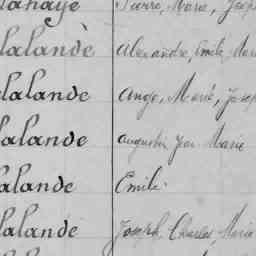 Pierre, Marie, Josep
lalande Alexandre, Emile, Mari
lalande Ange, Marie, Josep
lalande Augustin Jean Marie
alande Emile
lalande Joseph, Charles, Marie